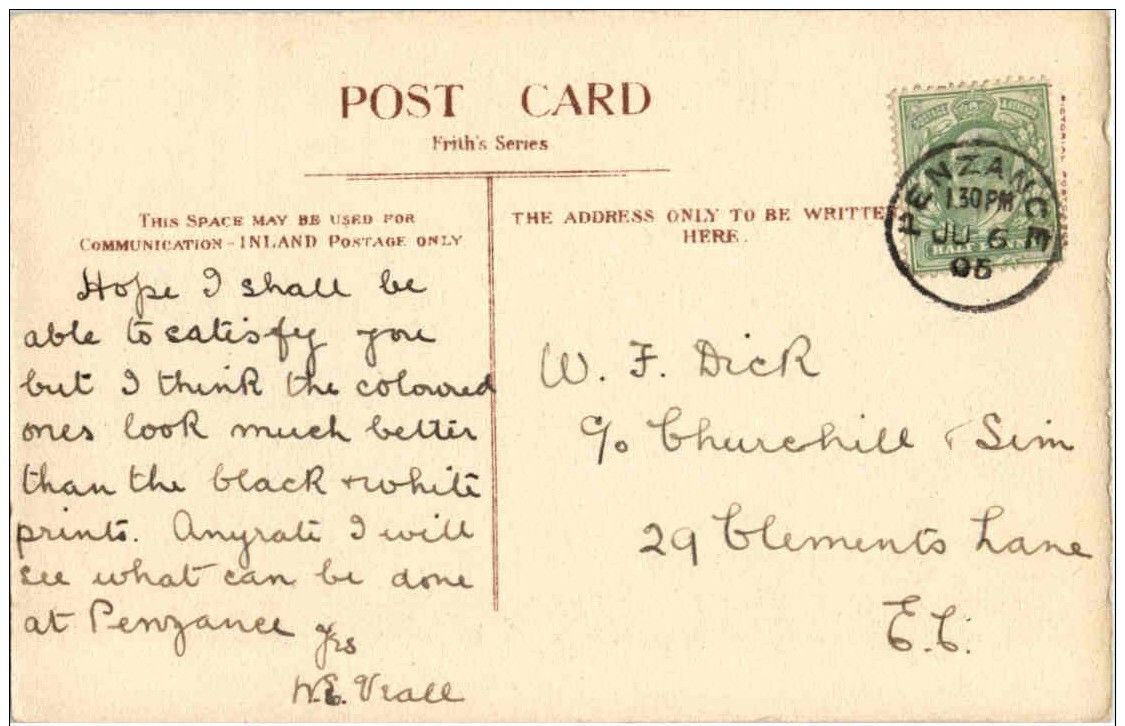 POST CARD
Frith's Series
THIS SPACE MAY BE USED FOR
COMMUNICATION - INLAND POSTAGE ONLY
THE ADDRESS ONLY TO BE WRITTE
HERE.
PENZANCE
1.30 PM
JU 6
05
HALF PENN
Hope I shall be
able to satisfy you
but I think the coloured
ones look much better
than the black & white
prints. Anyrate I will
see what can be done
at Penzance
Yrs
W.E. Veall
W. F. Dick
c/o Churchill & Sim
29 Clements Lane
E.C.